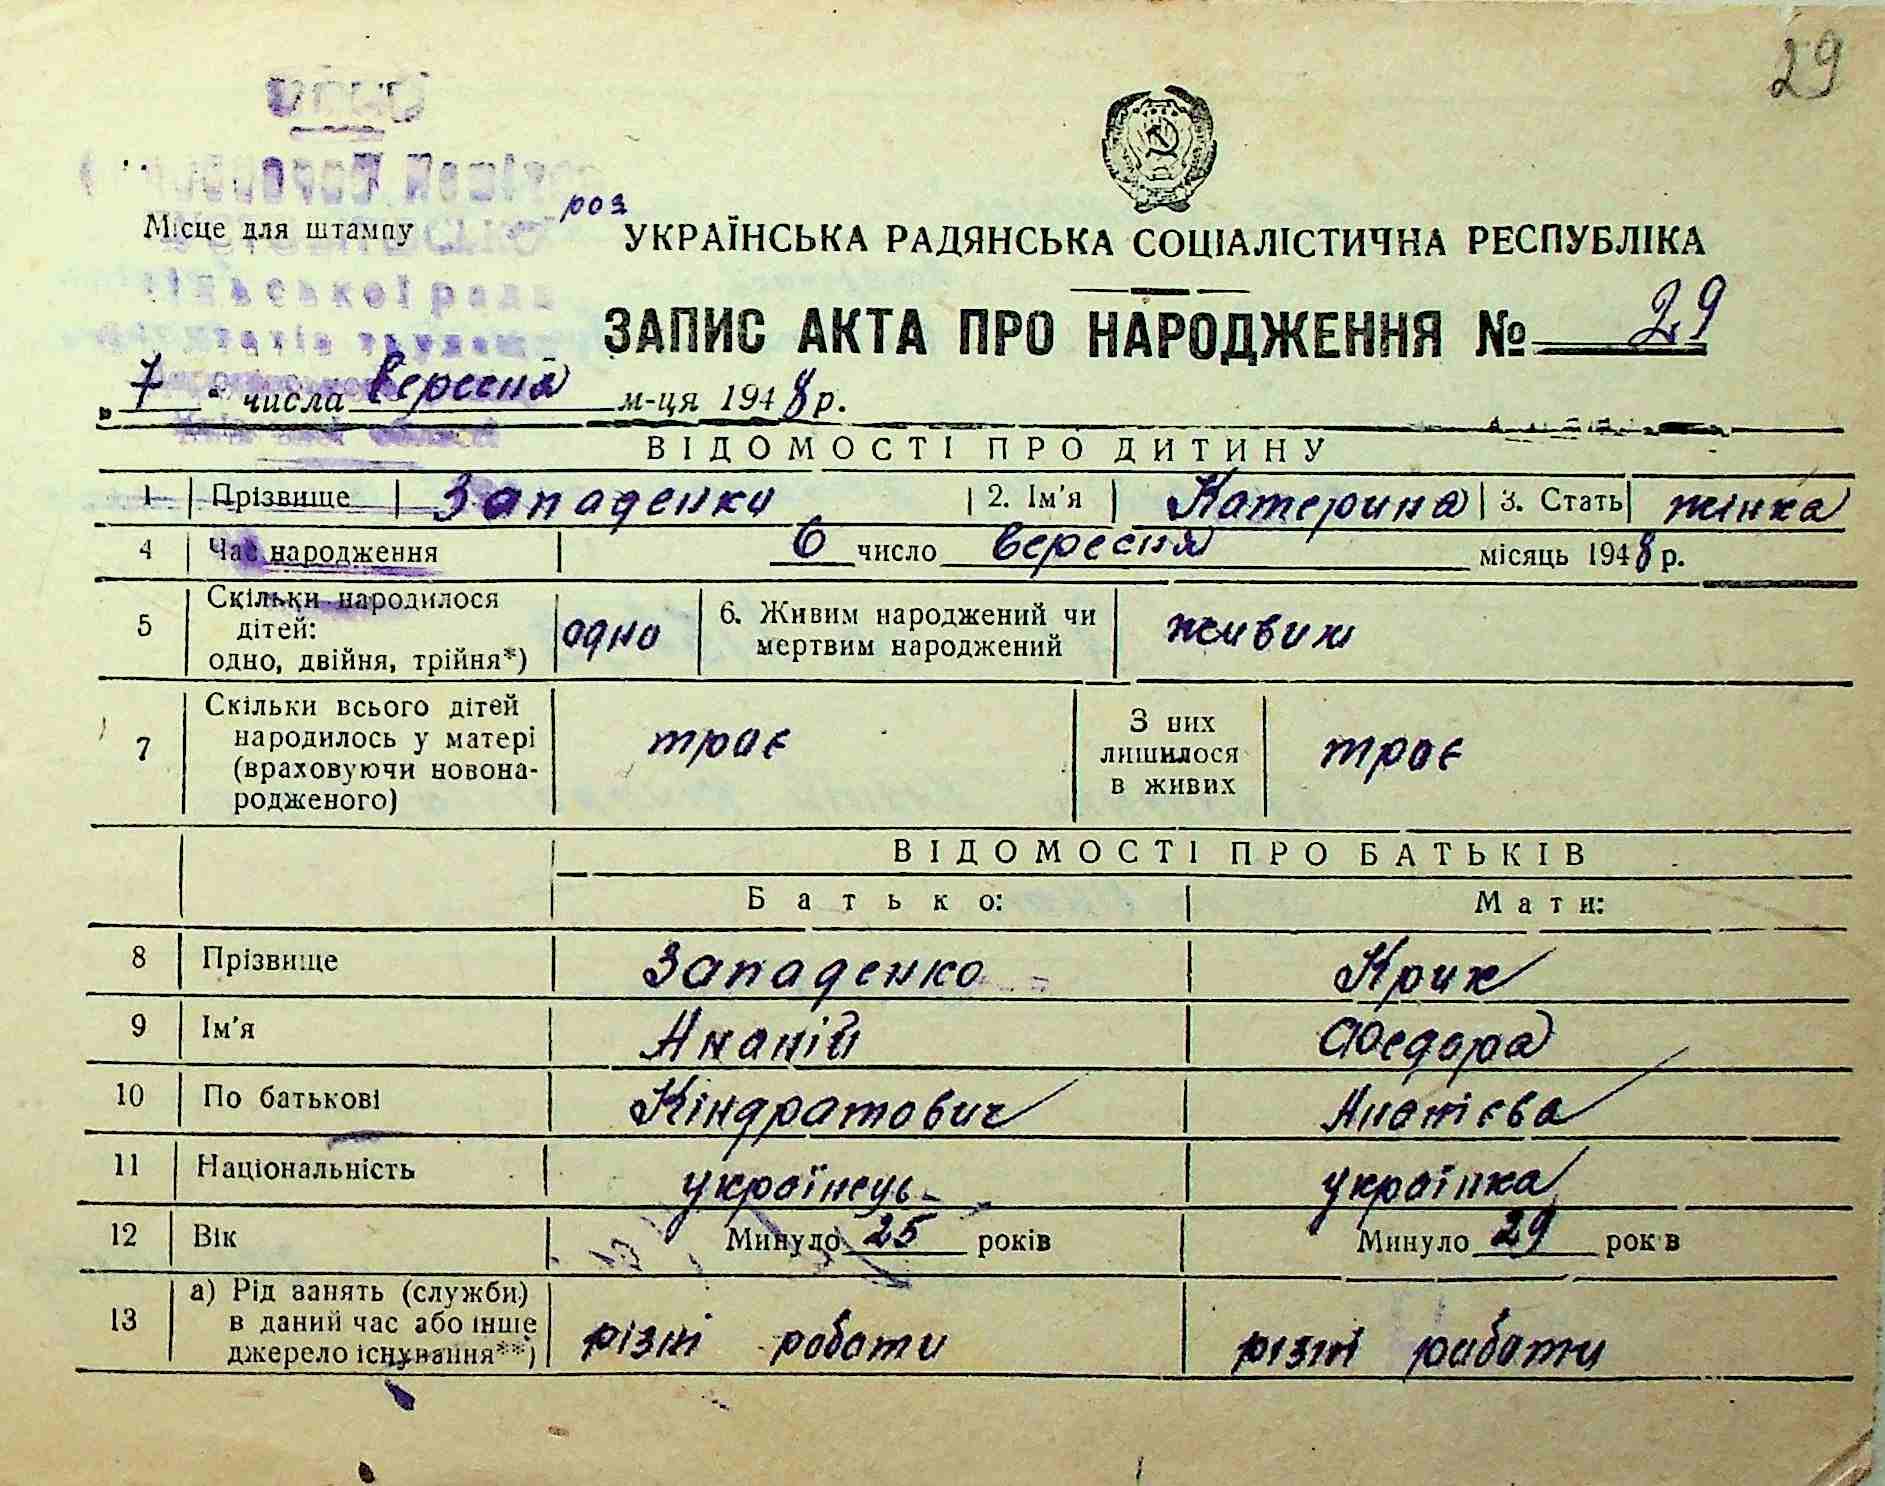 29
Місце для штампу
роз
УКРАЇНСЬКА РАДЯНСЬКА СОЦІАЛІСТИЧНА РЕСПУБЛІКА
ЗАПИС АКТА ПРО НАРОДЖЕННЯ № 29
„ 7 “ числа вересня м-ця 1948 р.
ВІДОМОСТІ ПРО ДИТИНУ
1 Прізвище Западенко 2. Ім'я Катерина 3. Стать жінка
4 Час народження 6 число вересня місяць 1948 р.
5 Скільки народилося дітей: одно, двійня, трійня*) одно 6. Живим народжений чи мертвим народжений живим
7 Скільки всього дітей народилось у матері (враховуючи новона-родженого) троє З них лишилося в живих троє
ВІДОМОСТІ ПРО БАТЬКІВ
Батько: Мати:
8 Прізвище Западенко Крик
9 Ім'я Ананій Федора
10 По батькові Кіндратович Ананієва
11 Національність українець українка
12 Вік Минуло 25 років Минуло 29 років
13 а) Рід занять (служби) в даний час або інше джерело існування**) різні роботи різні работи